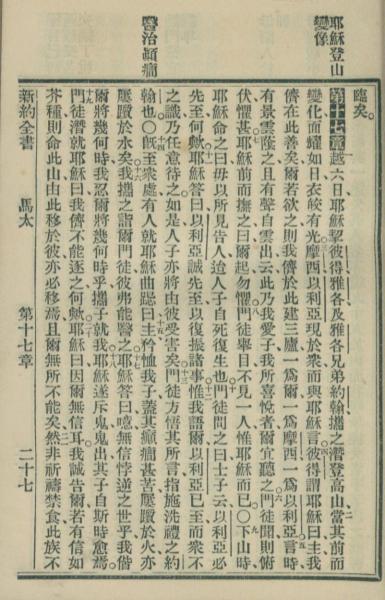 耶穌登山
變像
醫治癲癇
臨矣。
第十七章越六日耶穌挈彼得雅各及雅各兄弟約翰攜之潛登高山當其前而
變化面耀如日衣皎有光摩西以利亞現於衆而與耶穌言彼得謂耶穌曰主我
儕在此善矣爾若欲之則我儕於此建三廬一爲爾一爲摩西一爲以利亞言時
有景雲蔭之且有聲自雲出云此乃我愛子我所喜悅者爾宜聽之門徒聞則俯
伏懼甚耶穌前而撫之曰爾起勿懼門徒舉目不見一人惟耶穌而已○下山時
耶穌命之曰毋以所見告人迨人子自死復生也門徒問之曰士子云以利亞必
先至何歟耶穌答曰以利亞誠先至以復振諸事惟我語爾以利亞已至而衆不
之識乃任意待之如是人子亦將由彼受害矣門徒方悟其所言指施洗禮之約
翰也○旣至衆處有人就耶穌曲跽曰主矜恤我子蓋其癲癇甚苦屢躓於火亦
屢躓於水矣我攜之詣爾門徒彼弗能醫之耶穌答曰噫無信悖逆之世乎我偕
爾將幾何時我忍爾將幾何時乎攜子就我耶穌遂斥鬼鬼出其子自斯時愈焉
門徒潛就耶穌曰我儕不能逐之何歟耶穌曰因爾無信耳我誠告爾若有信如
芥種則命此山由此移於彼亦必移焉且爾無所不能矣然非祈禱禁食此族不
新約全書 馬太 第十七章 二十七